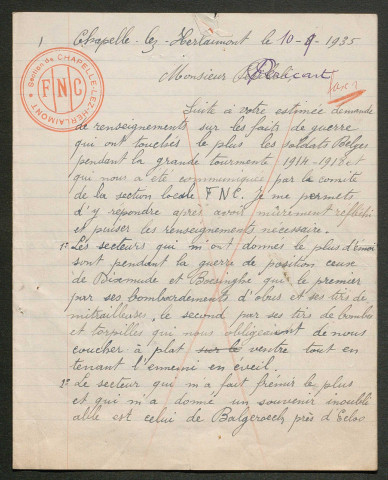 1
Chapelle-lez-Herlaimont le 10-9-1935
Section de CHAPELLE-LEZ-HERLAIMONT
FNC
Monsieur
Suite à votre estimée demande
de renseignements sur les faits de guerre
qui ont touchés le plus les soldats Belges
pendant la grande tourmente 1914-1918 et
qui nous a été communiquée par le comité
de la section locale FNC. Je me permets
d'y repondre après avoir mûrement reflechi
et puiser les renseignements nécessaire.
1º Les secteurs qui m'ont donnés le plus d'émoi
sont pendant la guerre de position ceux
de Dixemude et Boesinghe qui le premier
par ses bombardements d'obus et ses tirs de
mitrailleuses, le second par ses tirs de bombes
et torpilles qui nous obligeaient de nous
coucher à plat sur le ventre tout en
tenant l'ennemi en eveil.
2º Le secteur qui m'a fait frémir le plus
et qui m'a donné un souvenir inoubli
able est celui de Balgeroech près d'Ecloo